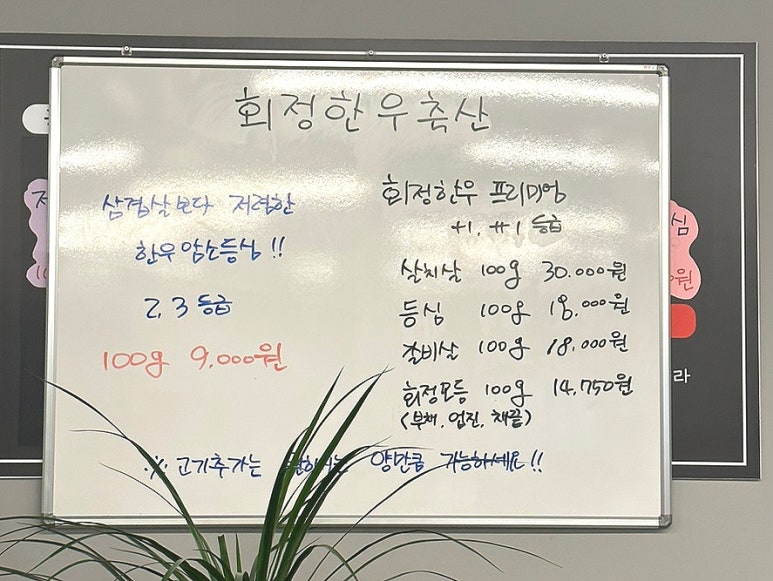 회정한우축산
삼겹살보다 저렴한
한우암소등심!!
2, 3등급
100g 9,000원
회정한우 프리미엄
+1, ++1 등급
살치살 100g 30.000원
등심 100g 18.000원
갈비살 100g 18.000원
회정모듬 100g 14.750원
(부채, 업진, 채끝)
※ 고기추가는 원하시는 양만큼 가능하세요!!
심
원
라